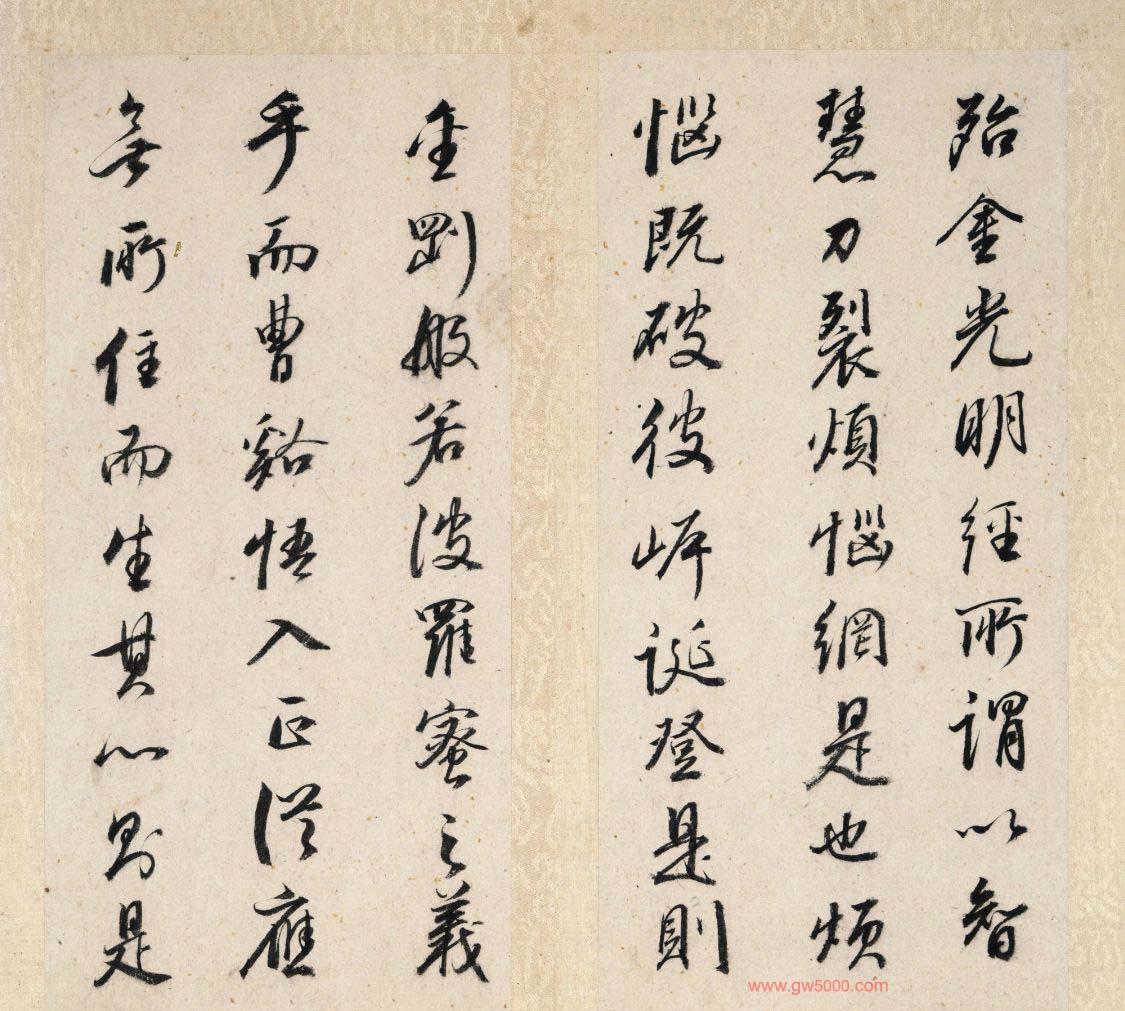 殆金光明經所謂以智
慧刀裂煩惱網是也煩
惱既破彼岸誕登是則
金剛般若波羅蜜之義
乎而曹谿悟入正從應
無所住而生其心則是
www.gw5000.com